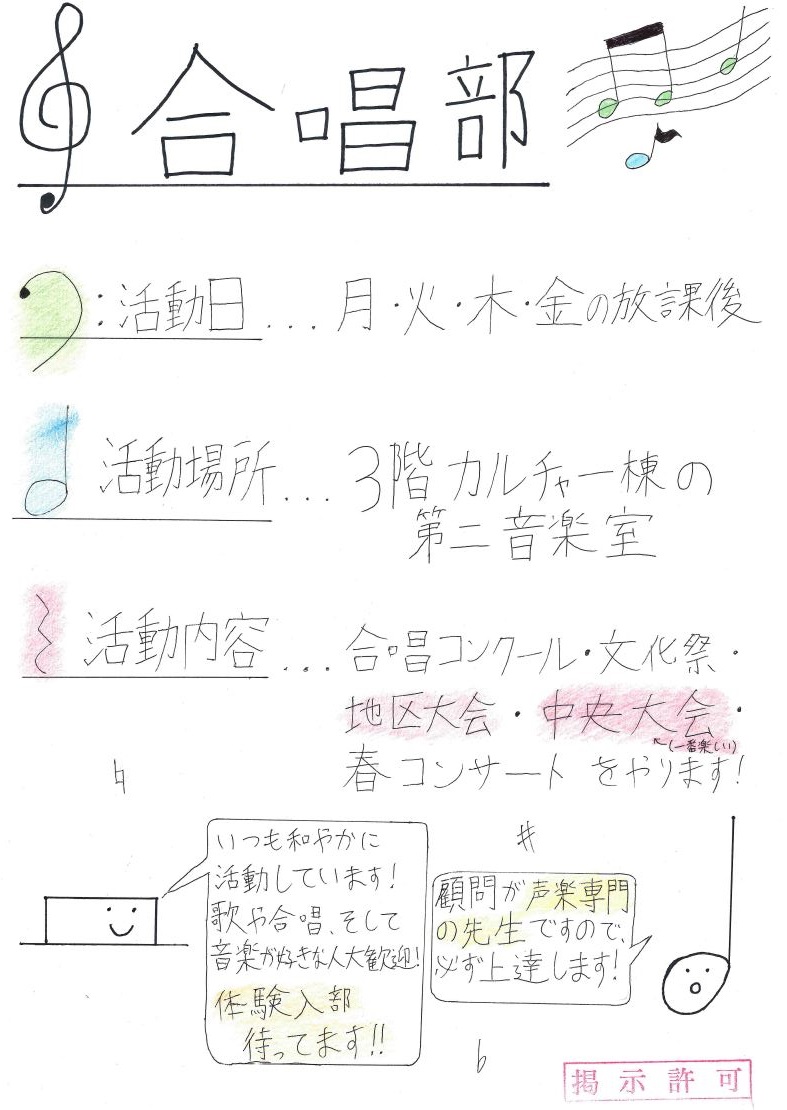 合唱部
:活動日...月・火・木・金の放課後
活動場所...3階カルチャー棟の
第二音楽室
活動内容...合唱コンクール・文化祭・
地区大会・中央大会・
(一番楽しい)
春コンサートをやります!
いつも和やかに
活動しています!
歌や合唱、そして
音楽が好きな人大歓迎!
体験入部
待ってます!!
顧問が声楽専門
の先生ですので、
必ず上達します!
掲示許可